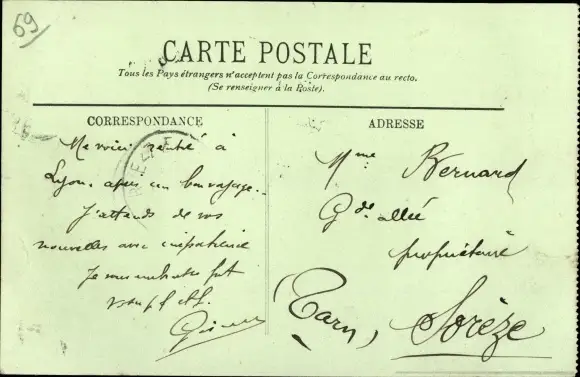 69
CARTE POSTALE
Tous les Pays étrangers n'acceptent pas la Correspondance au recto.
(Se renseigner à la Poste).
CORRESPONDANCE
ADRESSE
Me voici rentré à
Lyon, après un bon voyage.
J'attends de vos
nouvelles avec impatience
Je vous
Mme Bernard
Gde allée
propriétaire
(Tarn) Sorèze